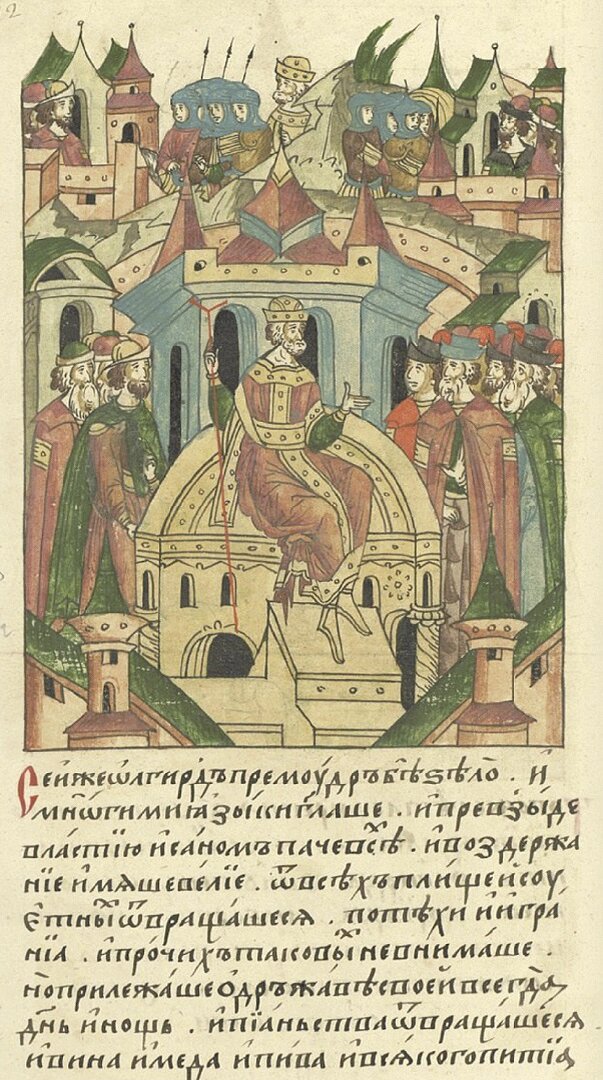 2
Сей же ѡлгирдъ премоудръ бѣ ѕѣло . и
мнѡгими ꙗзыки гл҃аше . и превзыде
властїю и саномъ паче всѣⷯ . и воздержа
нїе имѧше велїе . ѿ всѣхъ плищей соу
етныⷯ ѿвращашесѧ . потѣхи и игра
нїꙗ . и прочихъ таковыⷯ не внимаше .
но прилежаше ѡ дръжавѣ своей всегда
днь и нощь . и пїаньства ѿвращашесѧ
и вина и меда и пива и всѧкого питїꙗ